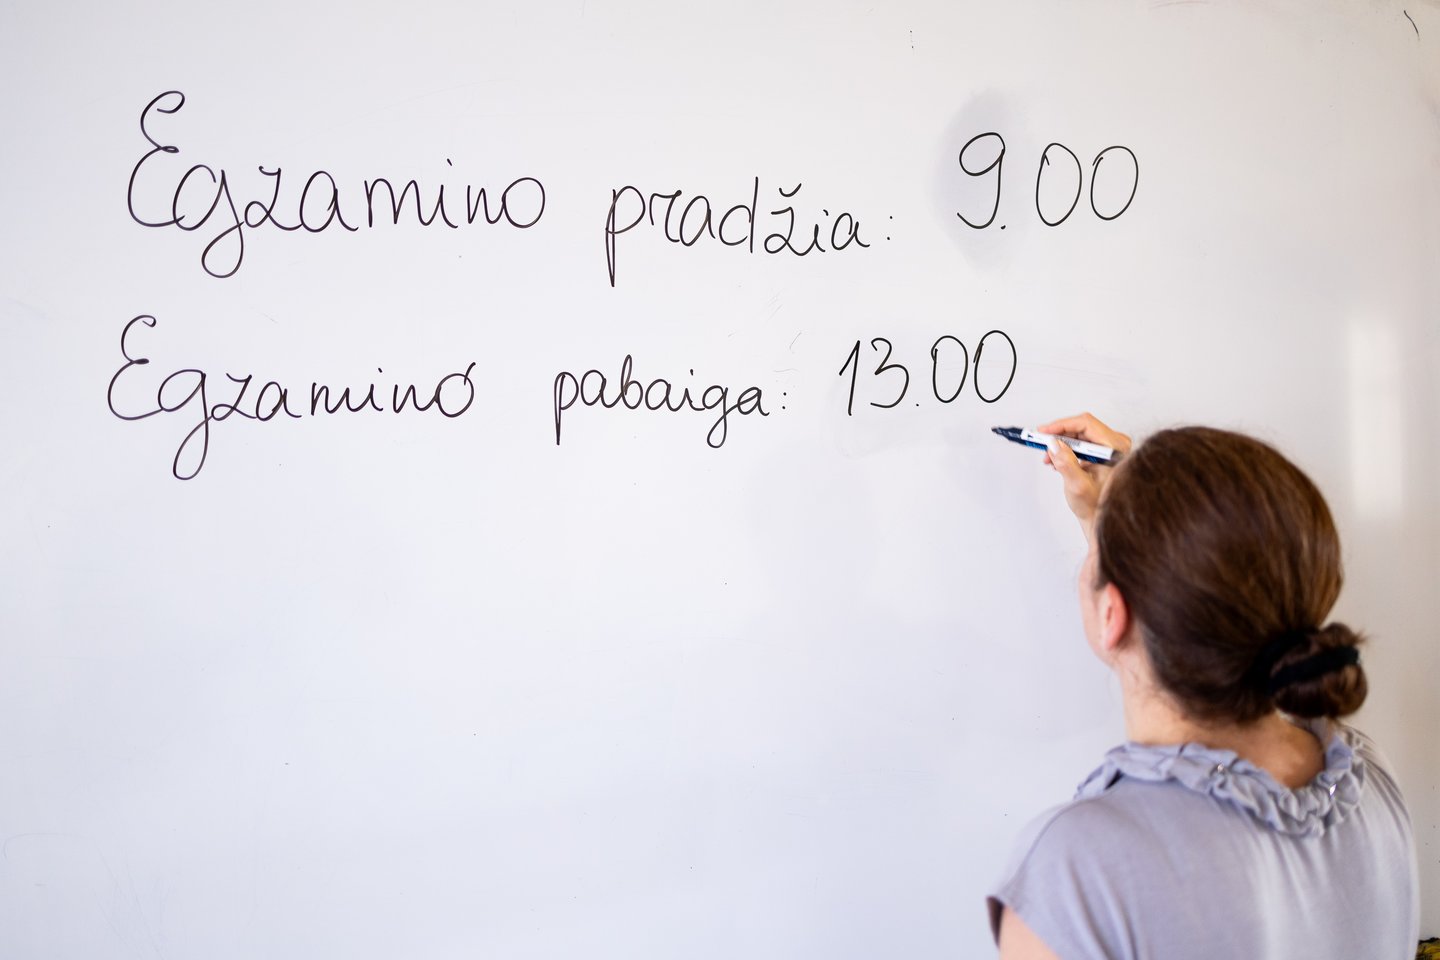 Egzamino pradžia: 9.00
Egzamino pabaiga: 13.00